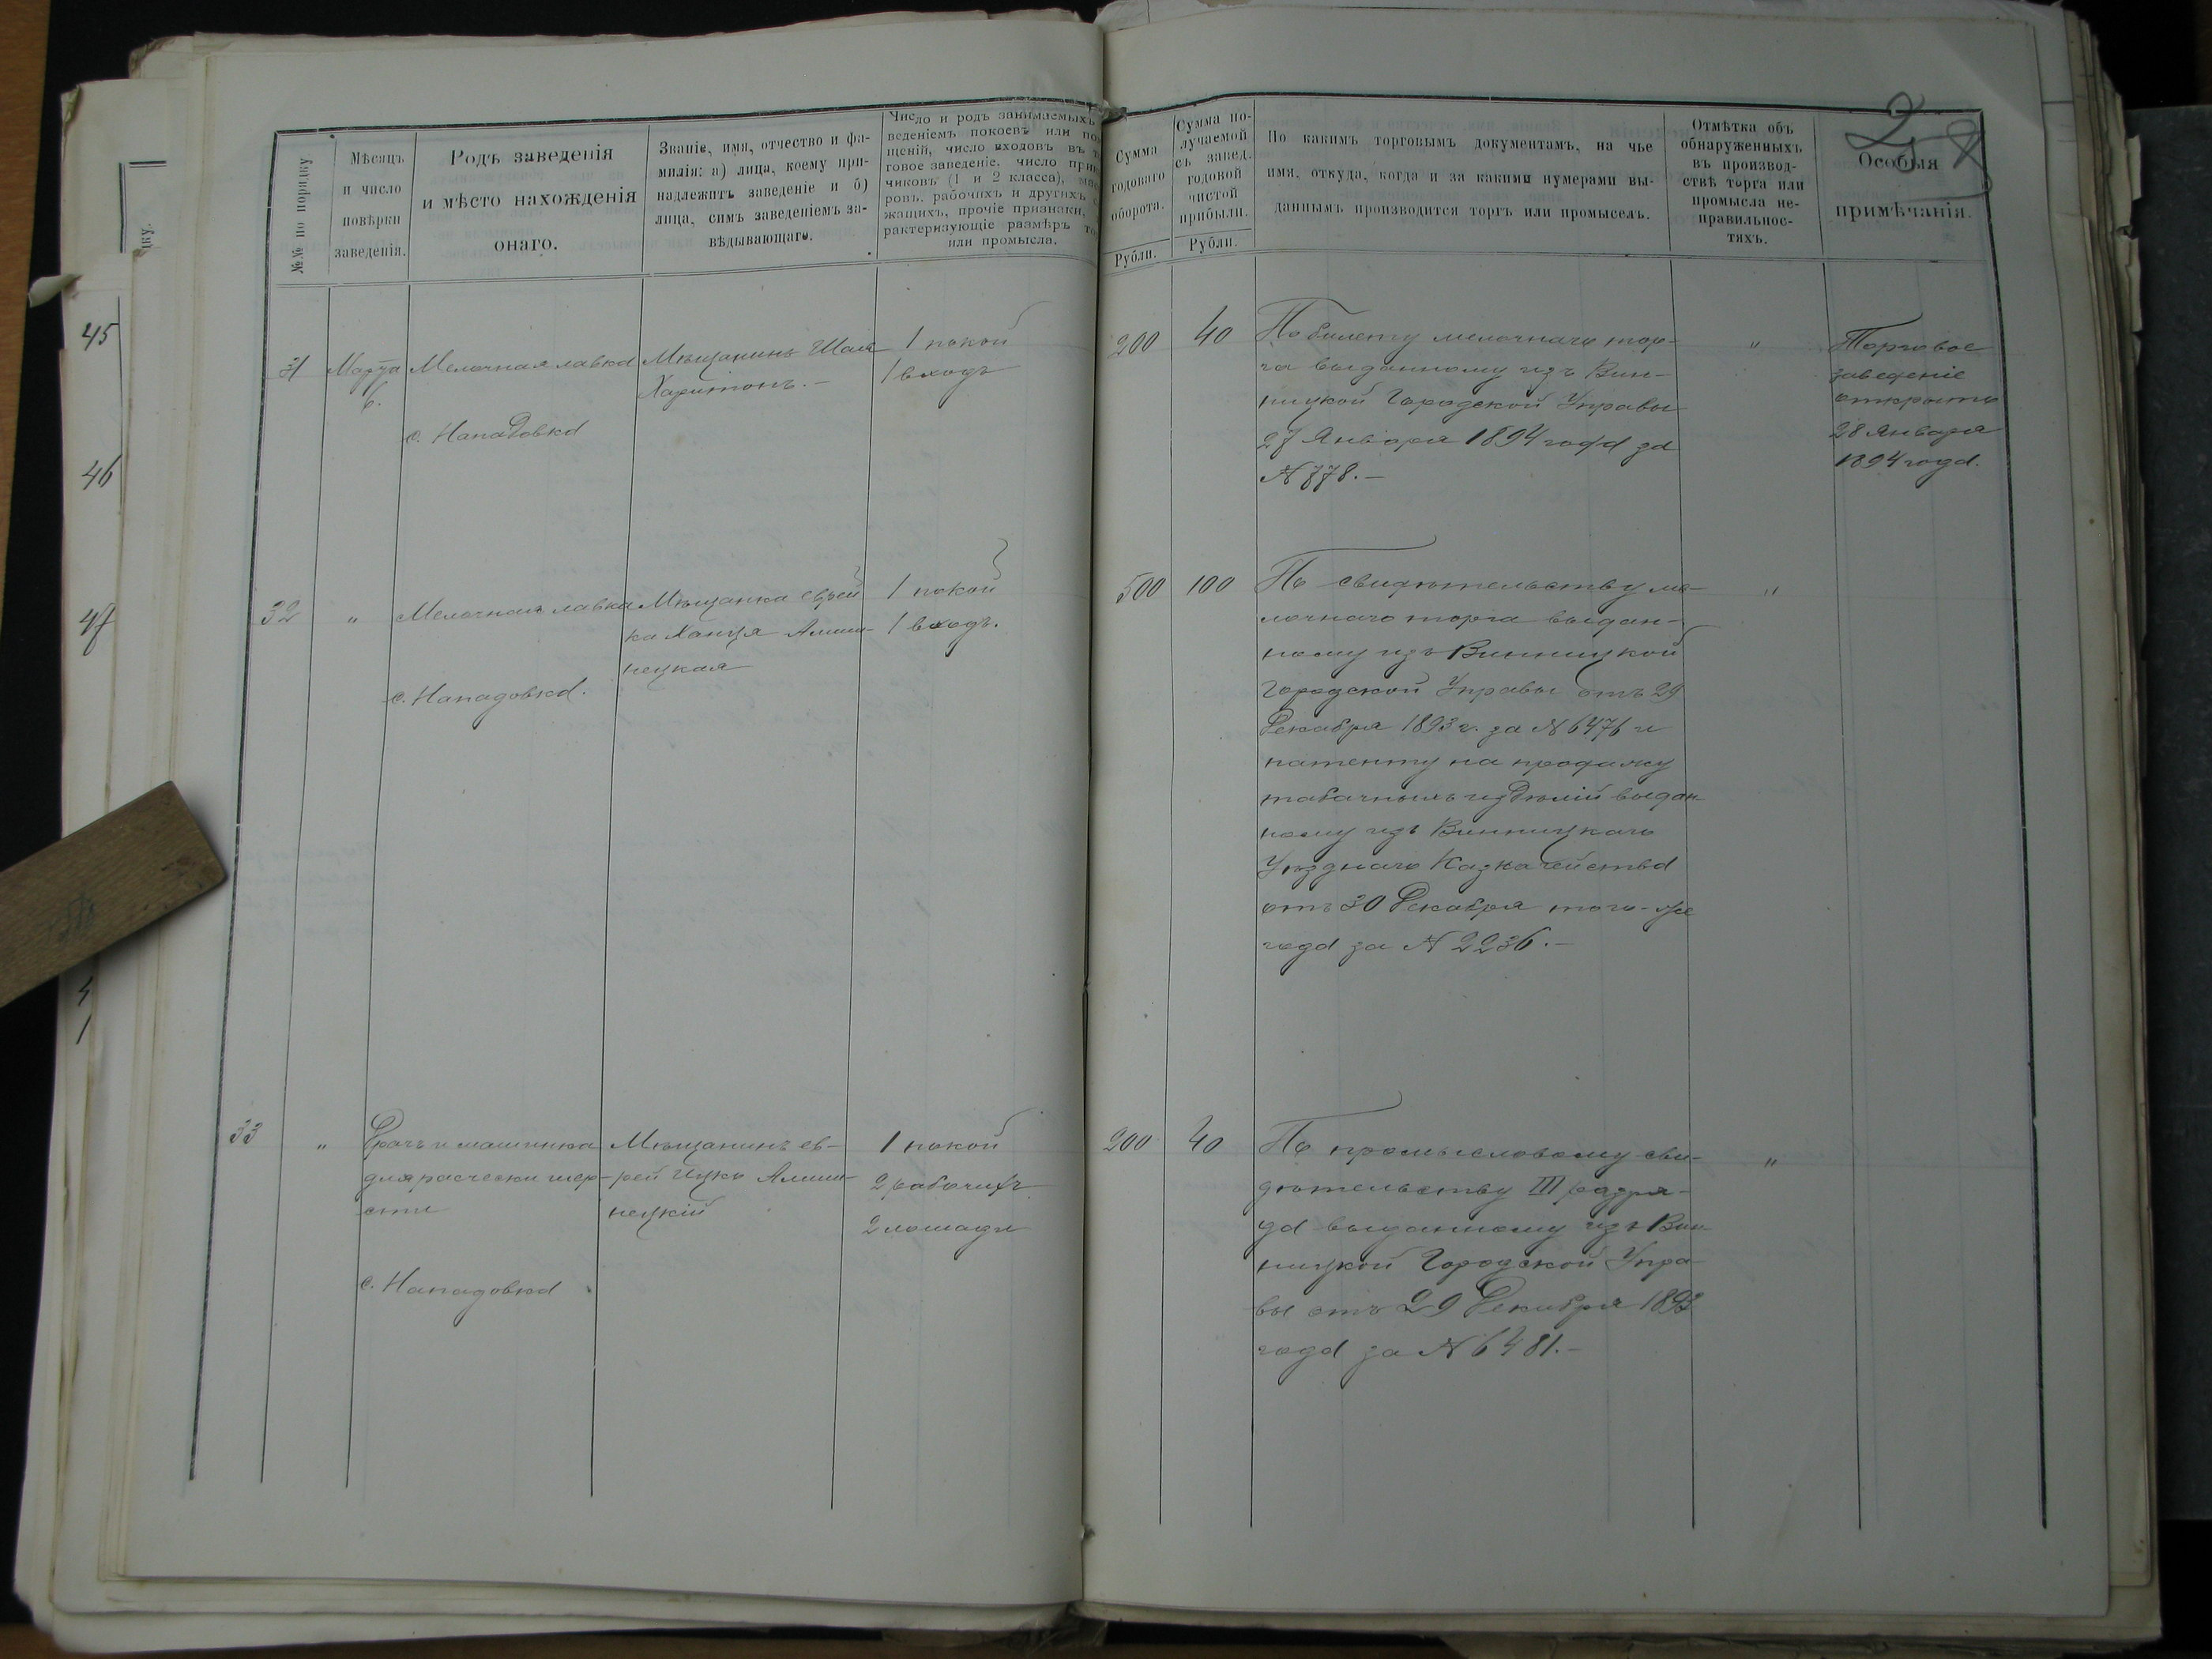 №№ по порядку.
Мѣсяцъ
и число
повѣрки
заведенія.
Родъ заведенія
и мѣсто нахожденія
онаго.
Званіе, имя, отчество и фа-
милія: а) лица, коему при-
надлежитъ заведеніе и б)
лица, симъ заведеніемъ за-
вѣдывающаго.
Число и родъ занимаемыхъ
веденіемъ покоевъ или по
щеній, число входовъ въ т
говое заведеніе, число при
чиковъ (1 и 2 класса), ма
ровъ, рабочихъ и другихъ с
жащихъ, прочіе признаки,
рактеризующіе размѣръ то
или промысла.
Сумма
годоваго
оборота.
Рубли.
Сумма по-
лучаемой
съ завед.
годовой
чистой
прибыли.
Рубли.
По какимъ торговымъ документамъ, на чье
имя, откуда, когда и за какими нумерами вы-
даннымъ производится торгъ или промыселъ.
Отмѣтка объ
обнаруженныхъ
въ производ-
ствѣ торга или
промысла не-
правильнос-
тяхъ.
Особыя
примѣчанія.
45
46
47
31
Марта
6.
Мелочная лавка
с. Нападовка
Мѣщанинъ
Харитонъ. —
1 покой
1 входъ
200
40
По билету мелочнаго тор-
га выданному изъ Вин-
ницкой Городской Управы
27 Января 1894 года за
N 778. —
"
Торговое
заведеніе
открыто
28 Января
1894 года.
32
"
Мелочная лавка
с. Нападовка.
Мѣщанка еврей
ка Ханця
нецкая
1 покой
1 входъ.
500
100
По свидѣтельству ме-
лочнаго торга выдан-
ному изъ Винницкой
Городской Управы отъ 29
Декабря 1893 г. за N 6476 и
патенту на продажу
табачныхъ издѣлій выдан-
ному изъ Винницкаго
Уѣзднаго Казначейства
отъ 30 Декабря того-же
года за N 2236. —
"
33
"
и машинка
для расчески шер-
сти
с. Нападовка
Мѣщанинъ ев-
рей Ицко
нецкій
1 покой
2 рабочихъ
2 лошади
200
40
По промысловому сви-
дѣтельству III разря-
да выданному изъ Вин
ницкой Городской Упра-
вы отъ 29 Декабря 1893
года за N 6481. —
"